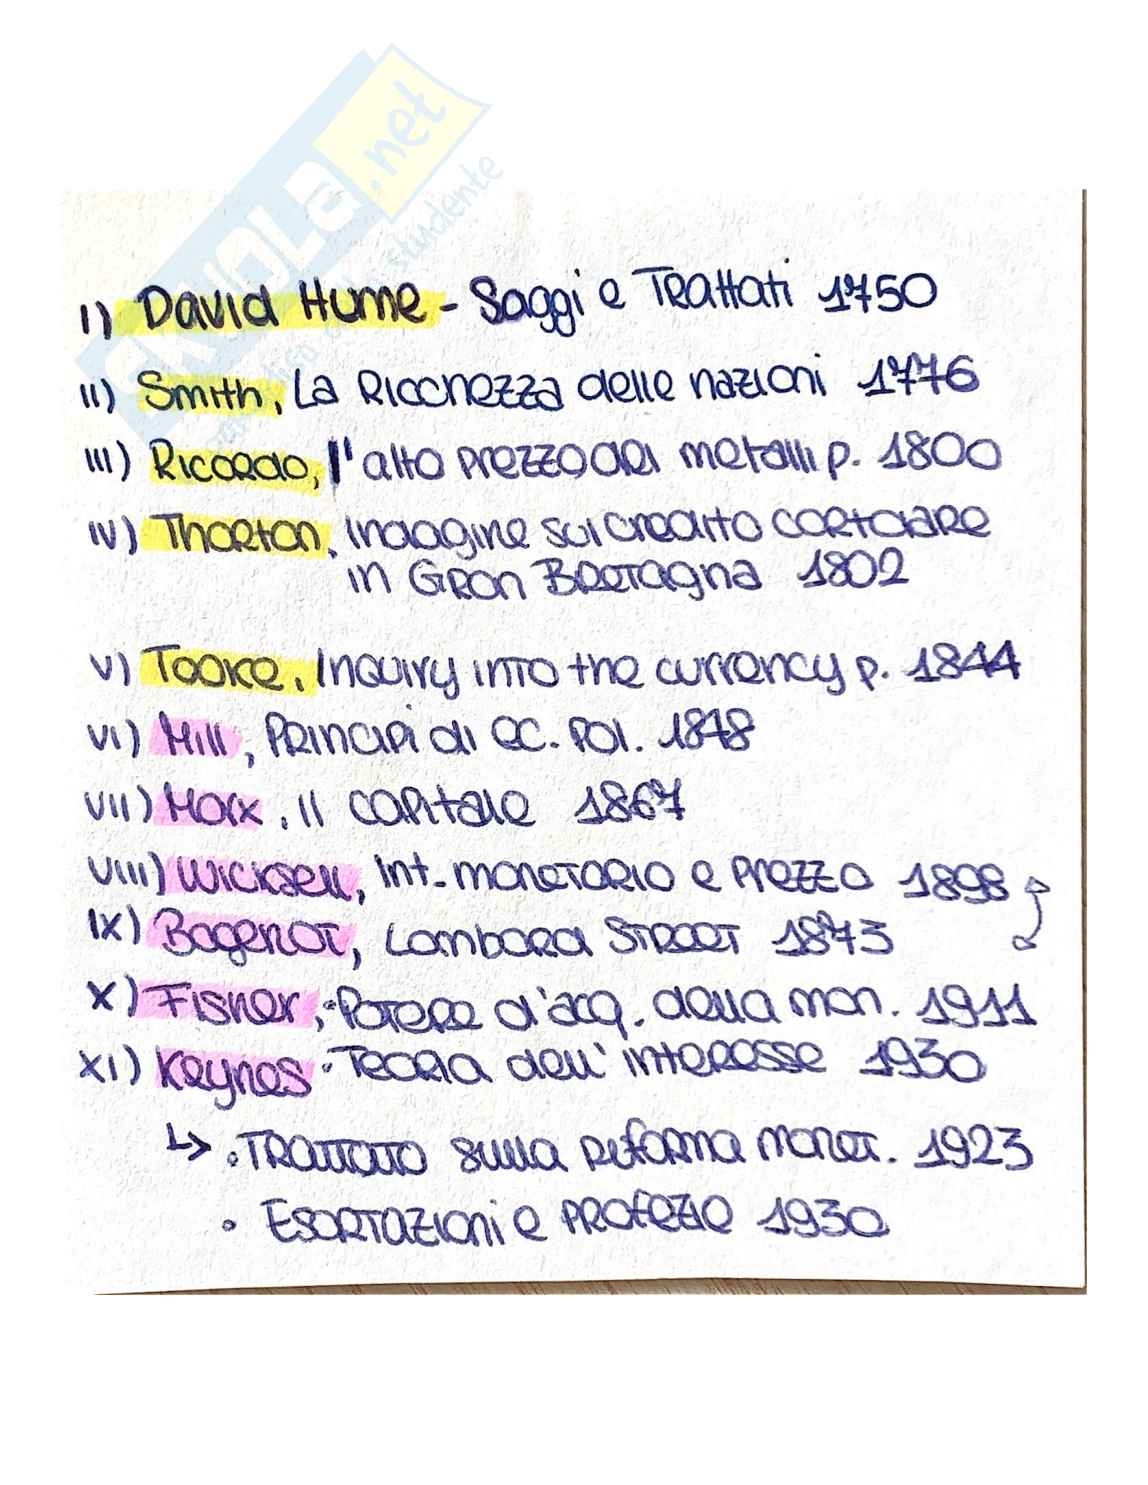 SKUOLA.net
I) David Hume - Saggi e Trattati 1750
II) Smith, La Ricchezza delle nazioni 1776
III) Ricardo, l'alto prezzo dei metalli p. 1800
IV) Thorton, Indagine sul credito cartciare
in Gran Bretagna 1802
V) Tooke, Inquiry into the currency p. 1844
VI) Mill, Principi di ec. pol. 1848
VII) Marx, Il Capitale 1867
VIII) Wicksell, Int. monetario e prezzo 1898
IX) Bagehot, Lombard Street 1873
X) Fisher, • Potere d'acq. della mon. 1911
XI) Keynes • Teoria dell'interesse 1930
↳ • Trattato sulla riforma monet. 1923
• Esortazioni e profezie 1930